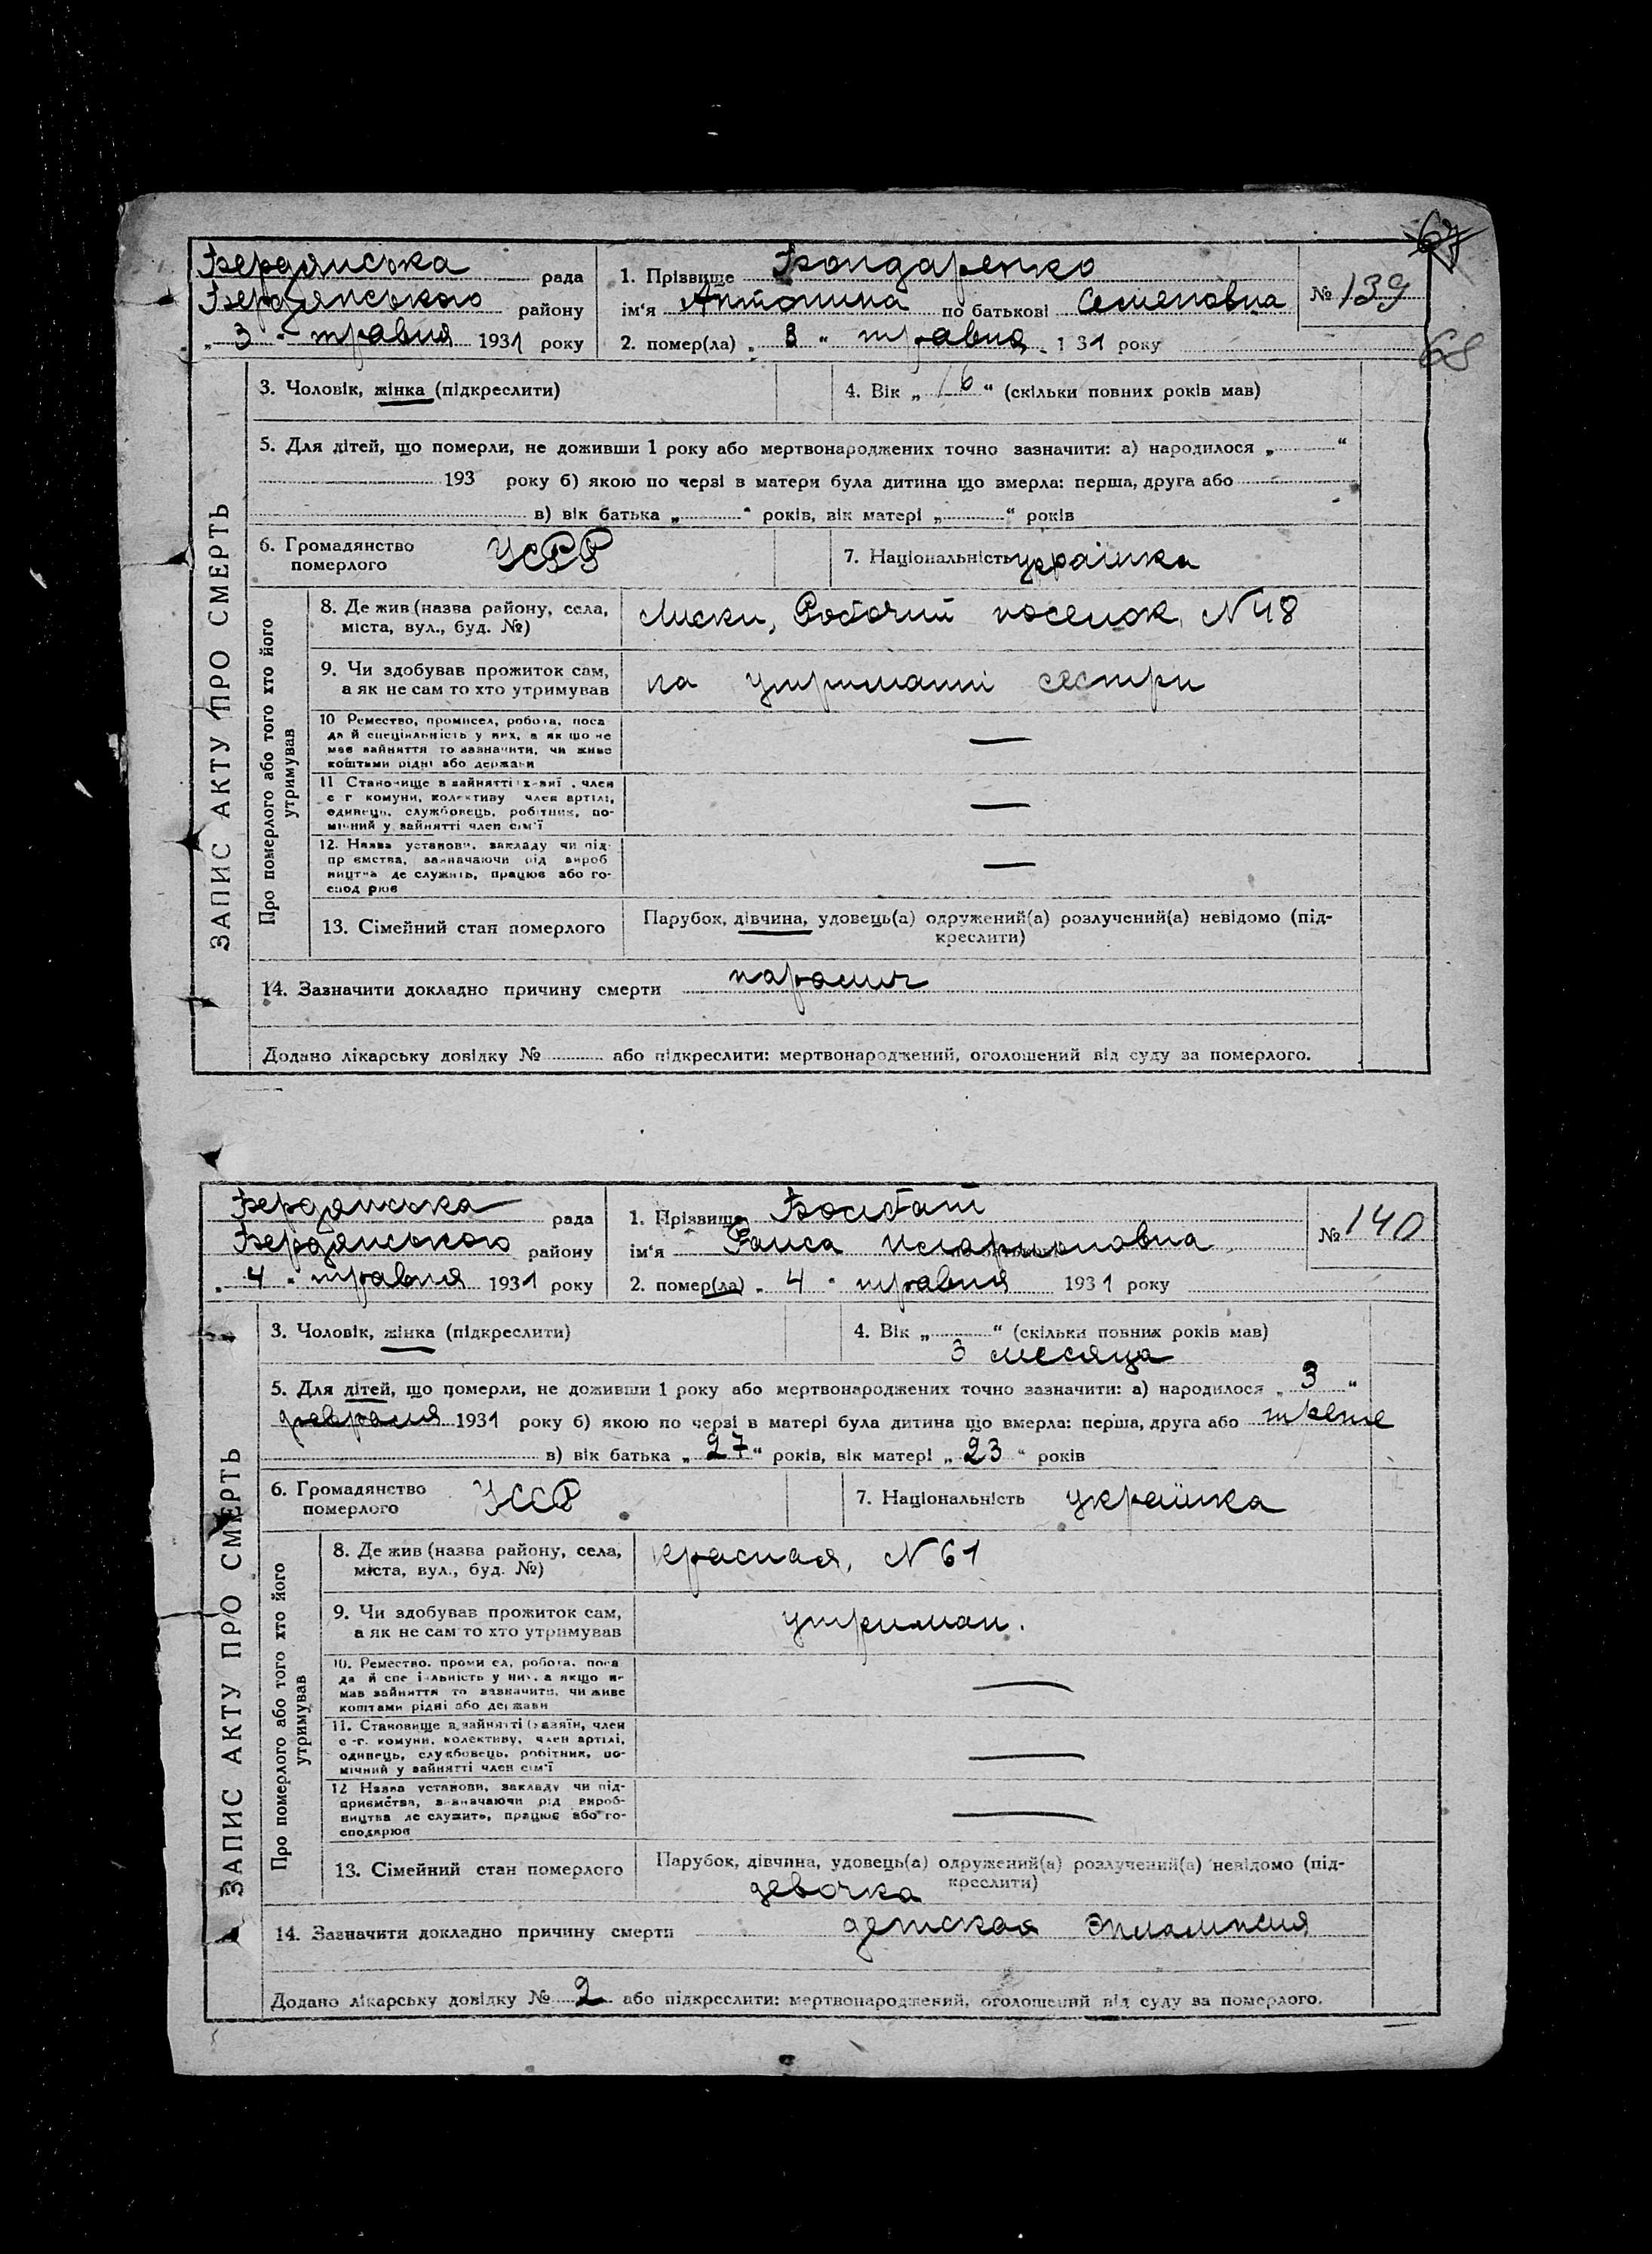 67
Бердянська рада
Бердянського району
„ 3 " травня 1931 року
1. Прізвище Бондаренко
ім'я Антонина по батькові Семеновна
2. помер(ла) „ 3 " травня 1 31 року
№ 139
68
ЗАПИС АКТУ ПРО СМЕРТЬ
3. Чоловік, жінка (підкреслити)
4. Вік „ 16 " (скільки повних років мав)
5. Для дітей, що померли, не доживши 1 року або мертвонароджених точно зазначити: а) народилося „ "
193 року б) якою по черзі в матери була дитина що вмерла: перша, друга або
в) вік батька „ " років, вік матері „ " років
6. Громадянство померлого УСРР
7. Національність українка
Про померлого або того хто його утримував
8. Де жив (назва району, села,
міста, вул., буд. №)
Лиски, Робочий поселок, N 48
9. Чи здобував прожиток сам,
а як не сам то хто утримував
на утриманні сестри
10 Ремество, промисел, робота, поса
да й спеціяльність у них, а як що не
має зайняття то зазначити, чи живе
коштами рідні або держави
—
11 Становище в зайнятті х-яї , член
с г комуни, колективу член артілі,
одинець, службовець, робітник, по-
мічний у зайнятті член сім'ї
—
12. Назва установи, закладу чи під-
пр ємства, зазначаючи рід вироб
ництва де служить, працює або го-
спод рює
—
13. Сімейний стан померлого
Парубок, дівчина, удовець(а) одружений(а) розлучений(а) невідомо (під-
креслити)
14. Зазначити докладно причину смерти параліч
Додано лікарську довідку № або підкреслити: мертвонароджений, оголошений від суду за померлого.
Бердянська рада
Бердянського району
„ 4 " травня 1931 року
1. Прізвище
ім'я Раиса Иларионовна
2. помер(ла) „ 4 " травня 1931 року
№ 140
ЗАПИС АКТУ ПРО СМЕРТЬ
3. Чоловік, жінка (підкреслити)
4. Вік „ " (скільки повних років мав)
3 месяца
5. Для дітей, що померли, не доживши 1 року або мертвонароджених точно зазначити: а) народилося „ 3 "
февраля 1931 року б) якою по черзі в матері була дитина що вмерла: перша, друга або третє
в) вік батька „ 27 " років, вік матері „ 23 " років
6. Громадянство померлого УССР
7. Національність українка
Про померлого або того хто його утримував
8. Де жив (назва району, села,
міста, вул., буд. №)
Красная, N 61
9. Чи здобував прожиток сам,
а як не сам то хто утримував
утриман.
10. Ремество, проми ел, робота, поса
да й спе і-льність у них, а якщо не
має зайняття то зазначити, чи живе
коштами рідні або держави
—
11. Становище в зайнятті (хазяїн, член
с -г. комуни, колективу, член артілі,
одинець, службовець, робітник, по-
мічний у зайнятті член сім'ї
—
12 Назва установи, закладу чи під-
приємства, зазначаючи рід вироб-
ництва де служить, працює або го-
сподарює
—
13. Сімейний стан померлого
Парубок, дівчина, удовець(а) одружений(а) розлучений(а) невідомо (під-
креслити)
девочка
14. Зазначити докладно причину смерти детская эклампсия
Додано лікарську довідку № 2 або підкреслити: мертвонароджений, оголошений від суду за померлого.